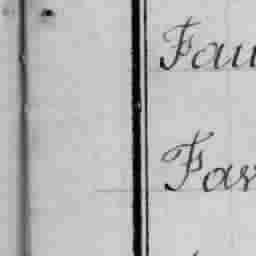 Fau
Far